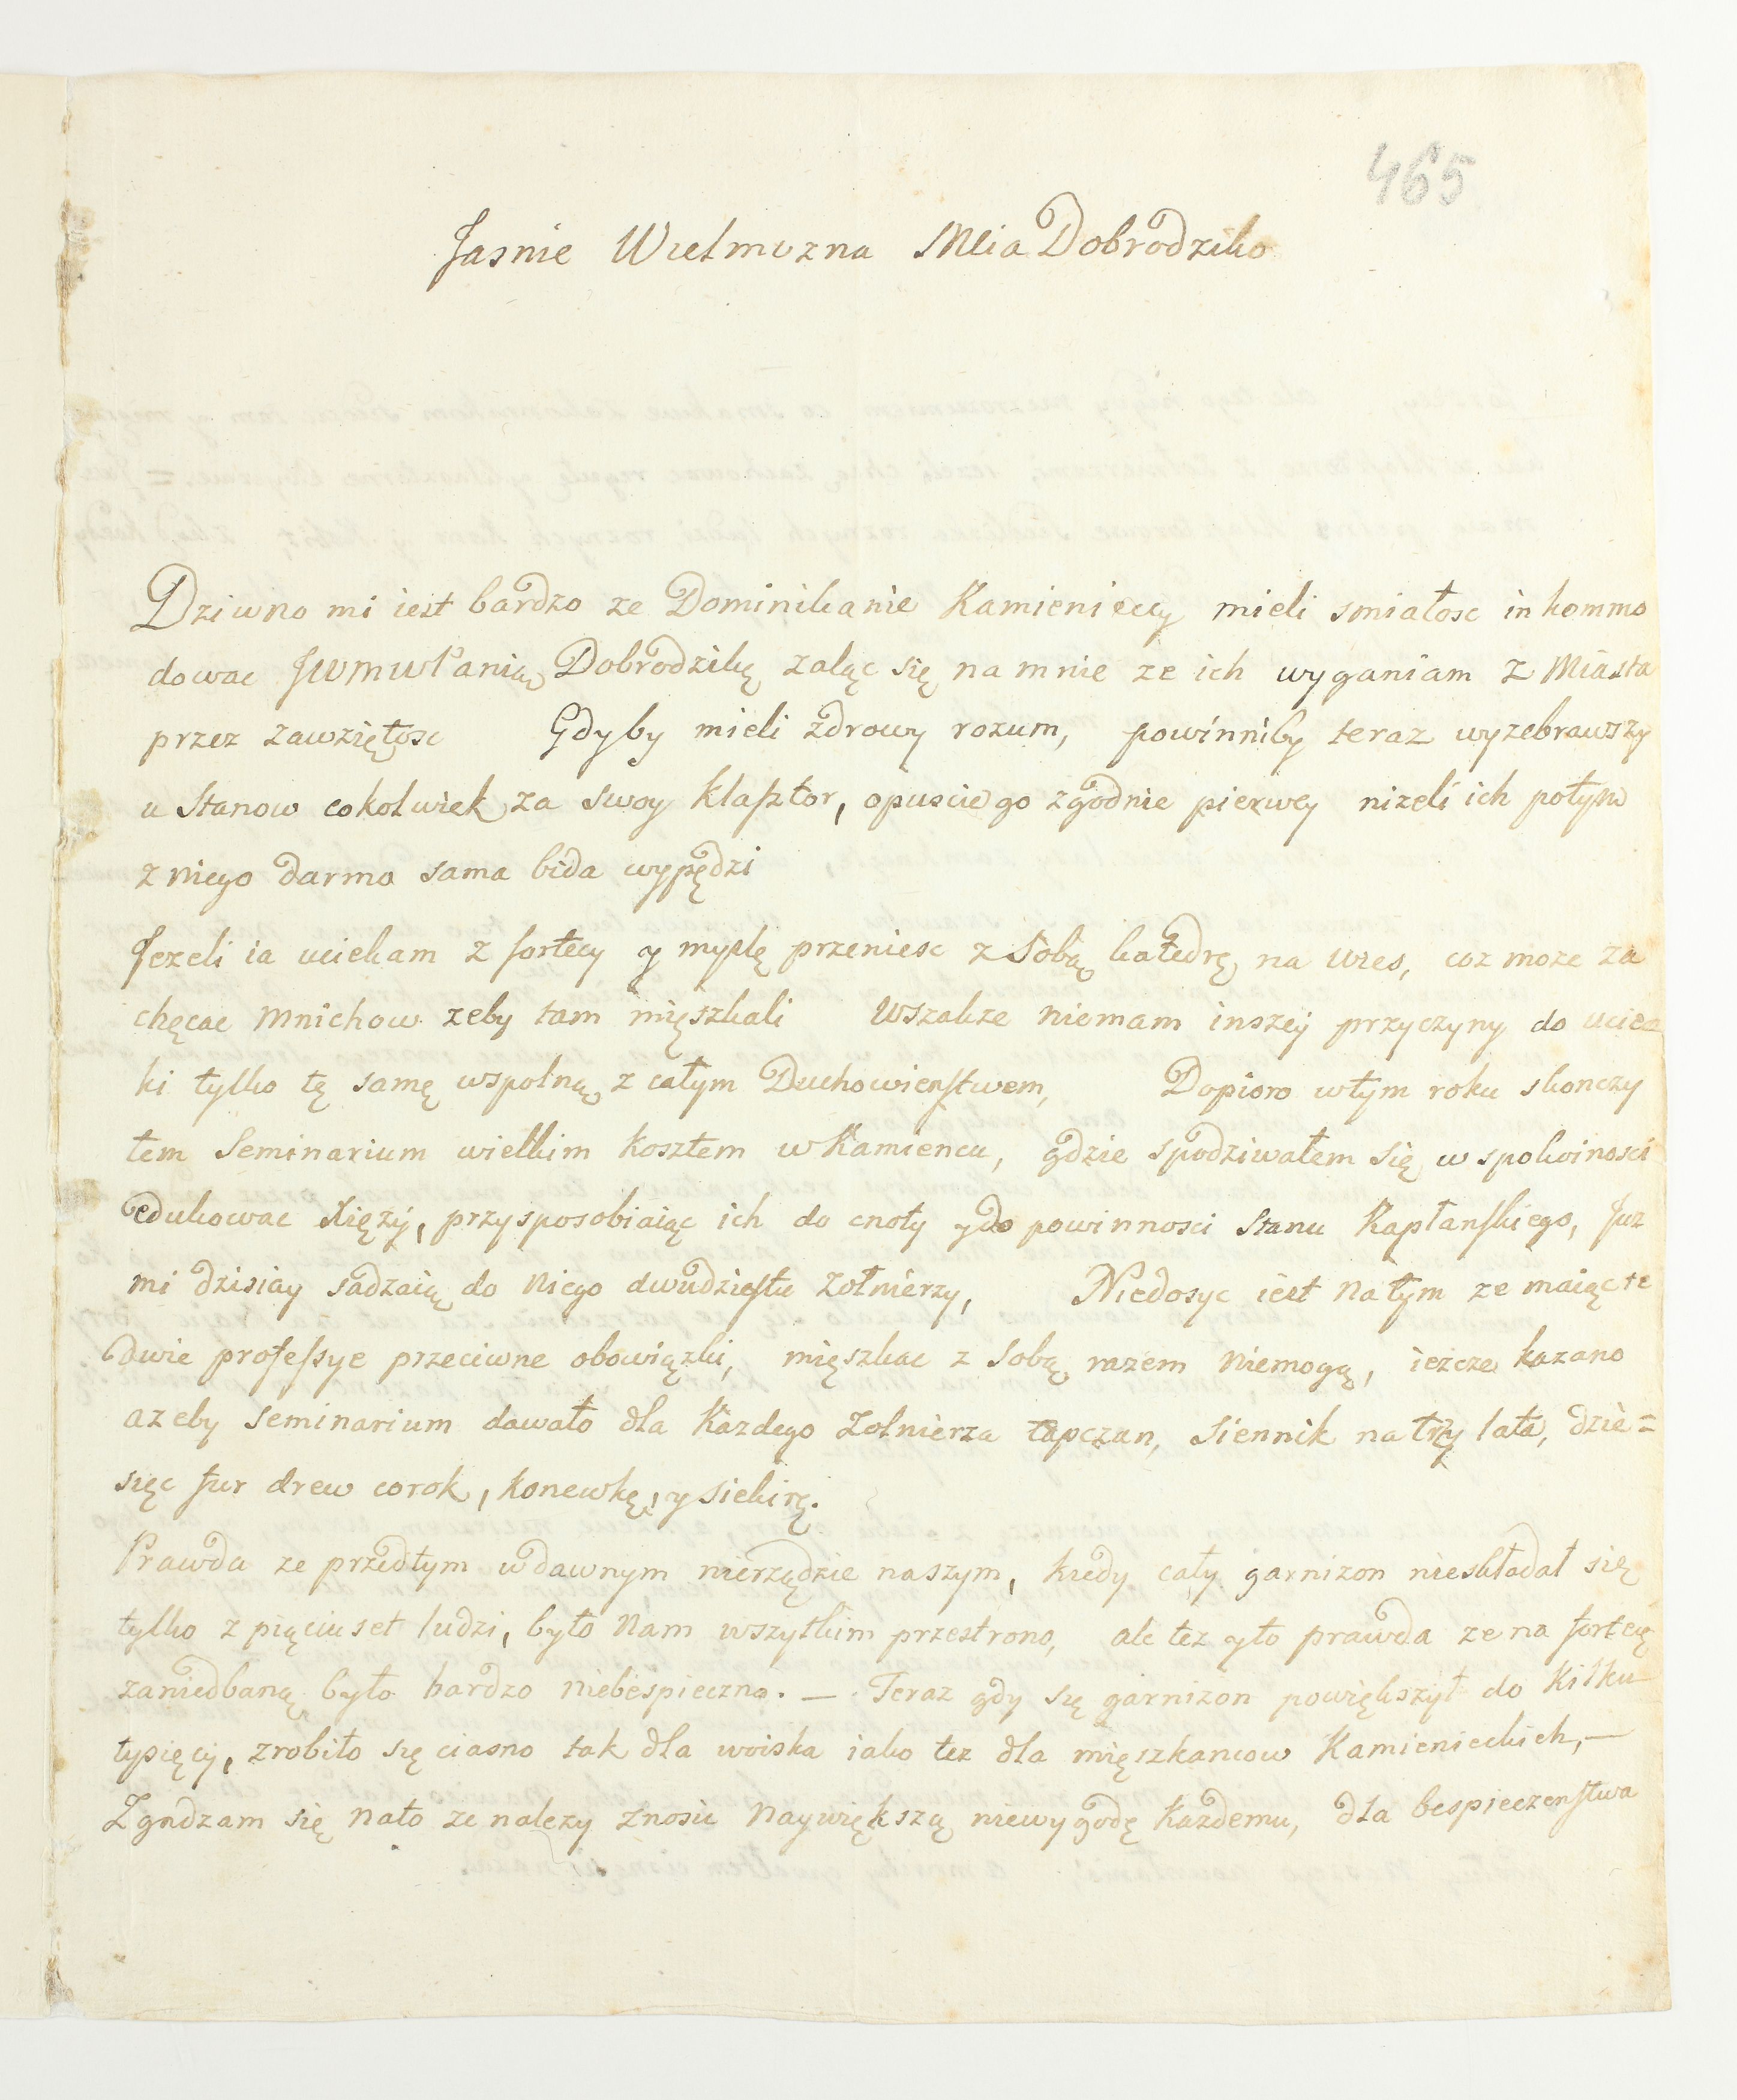 465
Jasnie Wielmozna Mcia Dobrodziko
Dziwno mi iest bardzo ze Dominikanie Kamienieccy mieli smiałosc inkommo
dowac JWmwPanią Dobrodzikę zaląc się na mnie ze ich wyganiam z Miasta
przez zawziętosc Gdyby mieli zdrowy rozum, powinniby teraz wyzebrawszy
u Stanow cokolwiek za swoy klasztor, opuscic go zgodnie pierwey nizeli ich potym
z niego darmo sama bida wypędzi
Jezeli ia uciekam z fortecy y myslę przeniesc z Sobą katedrę na wies, coz moze za
chęcac Mnichow zeby tam mięszkali Wszakze niemam inszey przyczyny do uciecz
ki tylko tę samę wspolną z całym Duchowienstwem, Dopioro wtym roku skonczy
łem Seminarium wielkim kosztem w Kamiencu, gdzie spodziwałem się w spokoinosci
edukowac Xięzy, przysposobiaiąc ich do cnoty y do powinnosci Stanu Kapłanskiego, Juz
mi dzisiay sadzaią do niego dwudziestu Zołnierzy, Niedosyc iest natym ze maiąc te
dwie professye przeciwne obowiązki, mięszkac z sobą razem niemogą, ieszcze kazano
azeby seminarium dawało dla Kazdego Zolnierza tapczan, siennik na trzy lata, dzie=
sięc fur drew corok, konewkę, y siekirę.
Prawda ze przedtym wdawnym nierządzie naszym, kiedy cały garnizon nieskładał się
tylko z pięciuset ludzi, było nam wszytkim przestrono, ale tez yto prawda ze na fortecę
zaniedbaną było bardzo niebespieczno. — Teraz gdy się garnizon powiększył do kilku
tysięcy, zrobiło się ciasno tak dla woiska iako tez dla mięszkancow Kamienieckich, —
Zgadzam się nato ze nalezy znosic naywiększą niewygodę kazdemu, dla bespieczenstwa